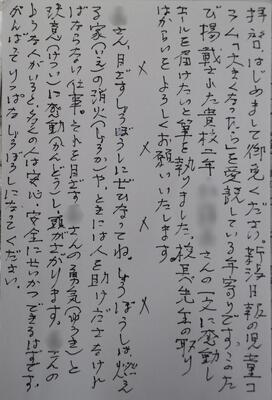 拝啓、はじめまして御免ください。新潟日報の児童コ
ラム「大きくなったら」を愛読している年寄りです。このた
び掲載された貴校二年 さんの一文に感動し
エールを届けたいと筆を執りました。校長先生の取り
はからいをよろしくお願いいたします。
× × × ×
さん、目ざすしょうぼうしにぜひなってね。しょうぼうしは、燃え
る家(いえ)の消火(しょうか)や、ときには人を助けださなけれ
ばならない仕事。それを目ざす さんの勇気(ゆうき)と
決意(けつい)に感動(かんどう)し頭がさがります。 さんの
ような人がいると、多くの人は安心・安全にせいかつできるはずです。
がんばってりっぱなしょうぼうしになってください。